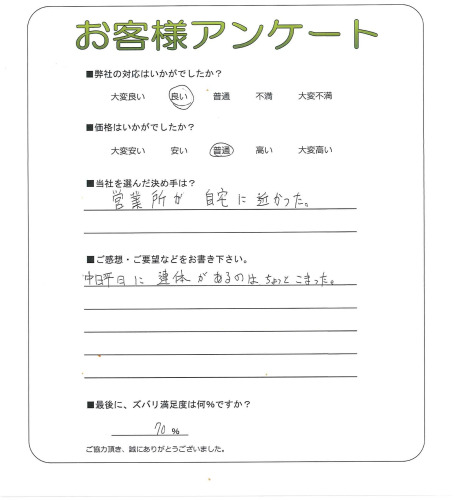 お客様アンケート
■弊社の対応はいかがでしたか?
大変良い 良い 普通 不満 大変不満
■価格はいかがでしたか?
大変安い 安い 普通 高い 大変高い
■当社を選んだ決め手は?
営業所が 自宅に近かった。
■ご感想・ご要望などをお書き下さい。
平日に 連休があるのは ちょっと こまった。
■最後に、ズバリ満足度は何%ですか?
70 %
ご協力頂き、誠にありがとうございました。